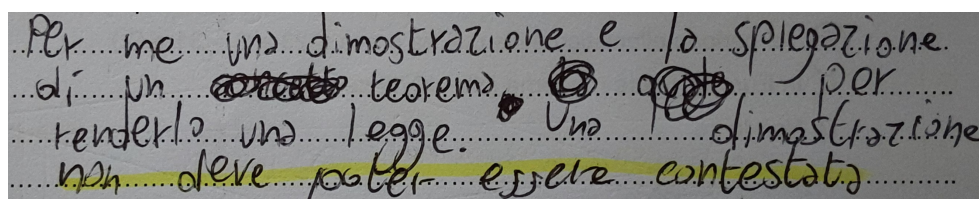 Per me una dimostrazione e la spiegazione
di un teorema per
renderlo una legge. Una dimostrazione
non deve poter essere contestata